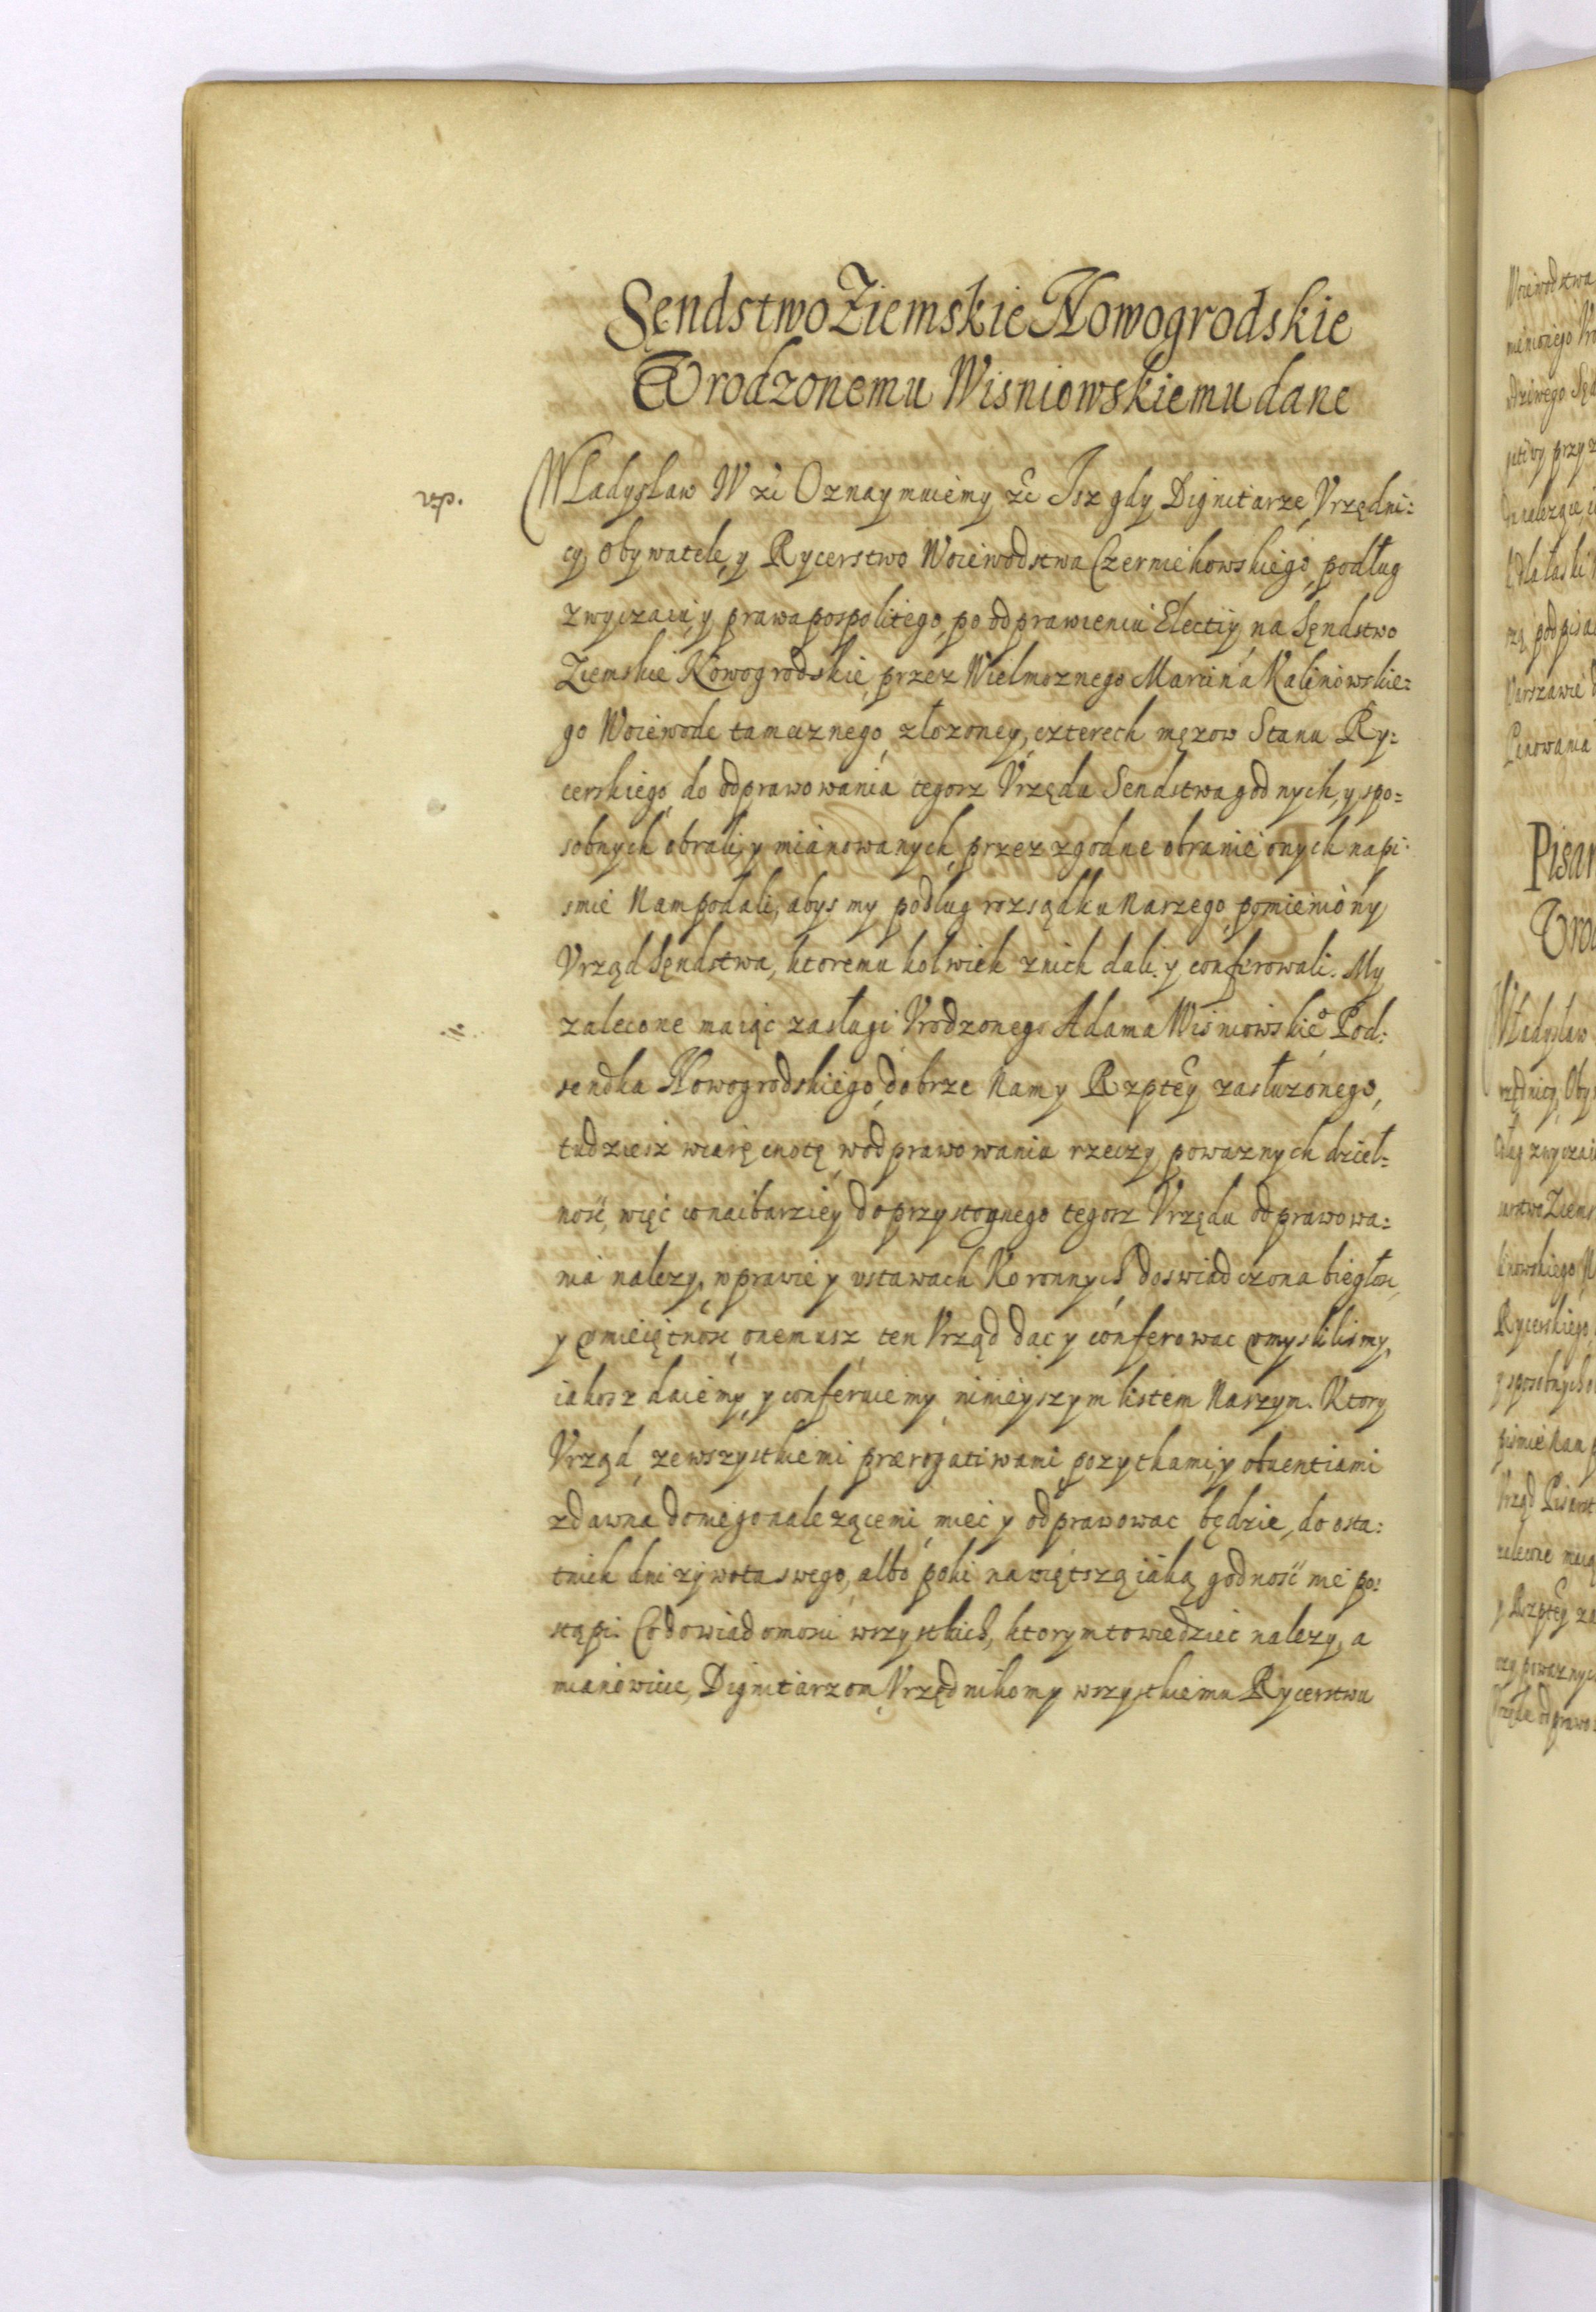 Sęndstwo Ziemskie Nowogrodskie
Vrodzonemu Wisniowskiemu dane
Władysław IV etc Oznaymuiemy etc Isz gdy Dignitarze, Vrzędni:
cy, Obywatele, y Rycerstwo Woiewodstwa Czerniehowskiego, podług
zwyczaiu, y prawa pospolitego, po odprawieniu Electiy, na Sęndstwo
Ziemskie Nowogrodskie, przez Wielmoznego Marcina Kalinowskie:
go Woiewode tamecznego, złozoney, czterech męzow Stanu Ry:
cerskiego, do odprawowania tegosz Vrzędu Sendstwa godnych, y spo=
sobnych obrali, y mianowanych, przez zgodne obranie onych na pi:
smie Nam podali, abysmy podług rozsądku Naszego, pomieniony
Vrząd Sęndstwa, ktoremu kolwiek z nich dali, y conferowali. My
zalecone maiąc zasługi Vrodzonego Adama Wisniowskieo Pod:
sendka Nowogrodskiego, dobrze Nam y Rzptey zasłuzonego,
tudziesz wiarę cnotę, w odprawowaniu rzeczy powaznych dziel=
ność, więc co naibarziey do przystoynego tegosz Vrzędu odprawowa:
nia nalezy, w prawie y ustawach Koronnych, doswiadczona biegłosc,
y umieiętnosc, onemusz ten Vrząd dac y conferowac umyslilismy,
iakosz daiemy, y conferuiemy, ninieyszym listem Naszym. Ktory
Vrząd, ze wszystkiemi prærogatiwami, pozytkami, y obuentiami
zdawna do niego nalezącemi, miec y odprawowac będzie, do osta:
tnich dni zywota swego, albo poki na więtszą iaką godność nie po:
stąpi. Co do wiadomosci wszystkich, ktorym to wiedziec nalezy, a
mianowicie, Dignitarzom, Vrzędnikom y wszystkiemu Rycerstwu